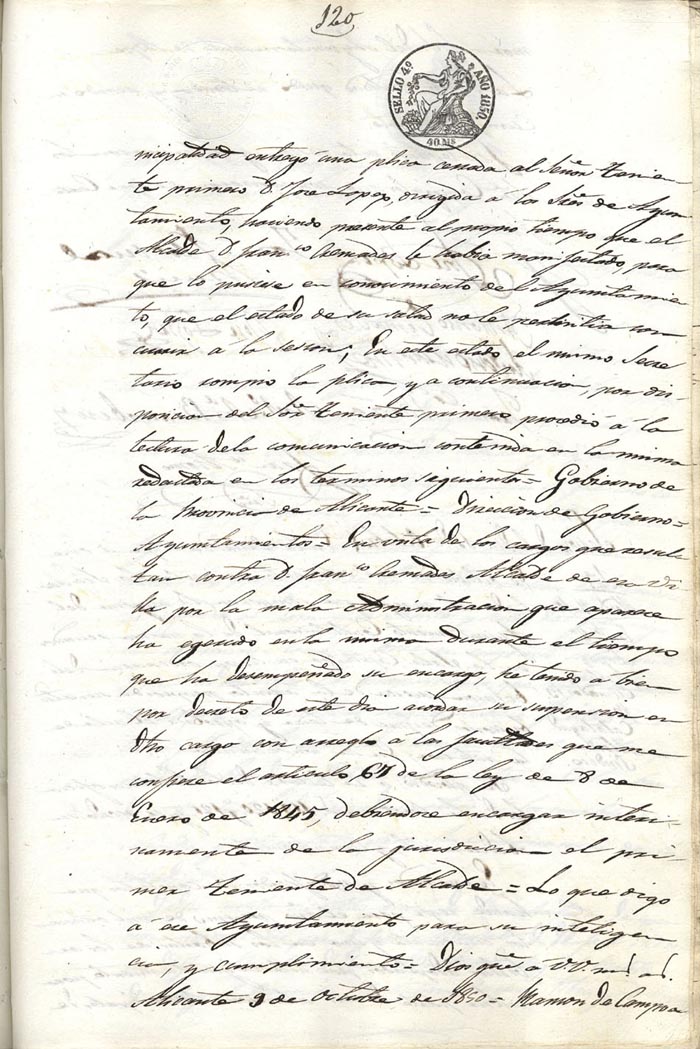 120
SELLO 4º AÑO 1850.
40 Ms
nicipalidad entregó una plica cerrada al Señor Tenien
te primero D. Jose Lopez, dirigida á los Sres de Ayun
tamiento, haciendo presente al propio tiempo que el
Alcalde D. Franco Cremades le habia manifestado, para
que lo pusiese en conocimiento del Ayuntamien
to, que el estado de su salud no le permitia con
currir á la sesion; En este estado el mismo Secre
tario rompio la plica y a continuacion, por dis
posicion del Sor Teniente primero procedió á la
lectura dela comunicacion contenida en la misma
redactada en los terminos siguientes= Gobierno de
la Provincia de Alicante= Direccion de Gobierno=
Ayuntamientos= En vista de los cargos que resul
tan contra D. Franco Cremades Alcalde de esa Vi
lla por la mala Administracion que aparece
ha egercido en la misma durante el tiempo
que ha desempeñado su encargo, he tenido á bien
por decreto de este dia acordar su suspension en
dho cargo con arreglo á las facultades que me
confiere el articulo 67 de la ley de 8 de
Enero de 1845, debiendose encargar interi-
namente de la jurisdiccion el pri-
mer Teniente de Alcalde= Lo que digo
á ese Ayuntamiento para su inteligen
cia, y cumplimiento= Dios gue á V.V. ms as.
Alicante 3 de Octubre de 1850= Ramon de Campoa